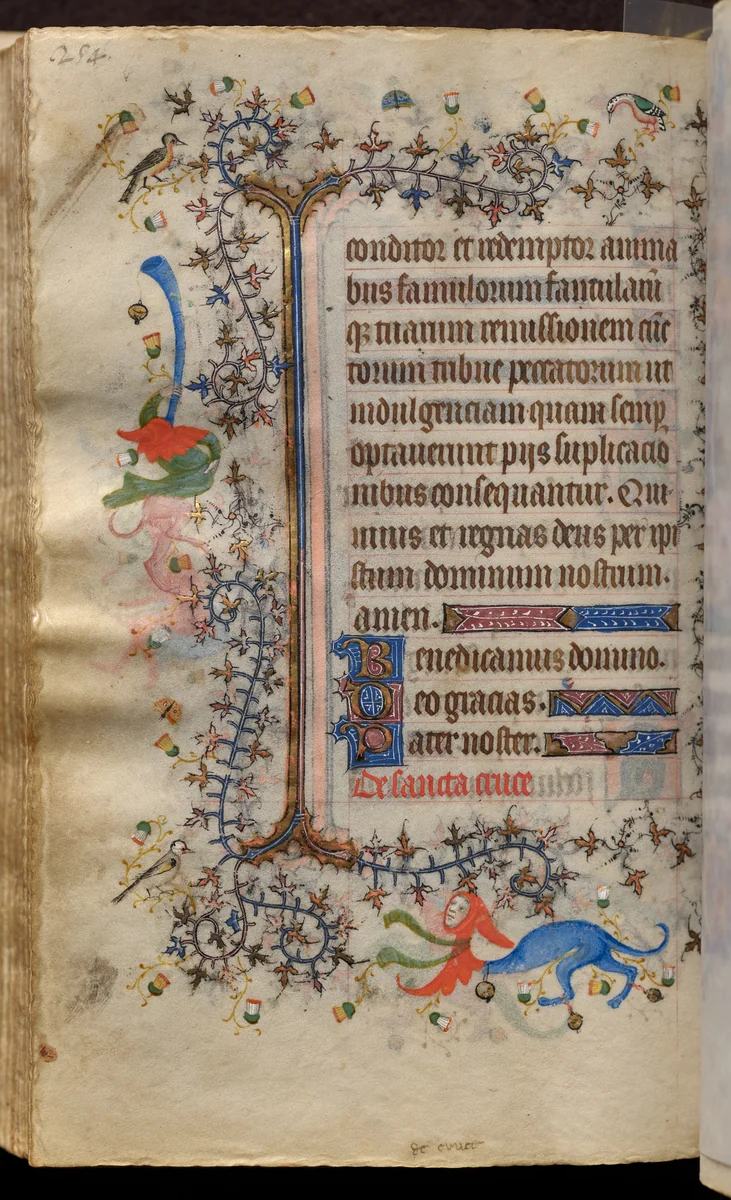 254.
conditor et redemptor anima
bus famulorum famularū
qꝫ tuarum remissionem cūc
torum tribue peccatorum ut
indulgenciam quam semꝑ
optauerunt pijs suplicacio
nibus consequantur. Qui
uiuis et regnas deus per ipī
stum dominum nostrum.
amen.
Benedicamus domino.
Deo gracias.
Pater noster.
De sancta cruce
de cruce